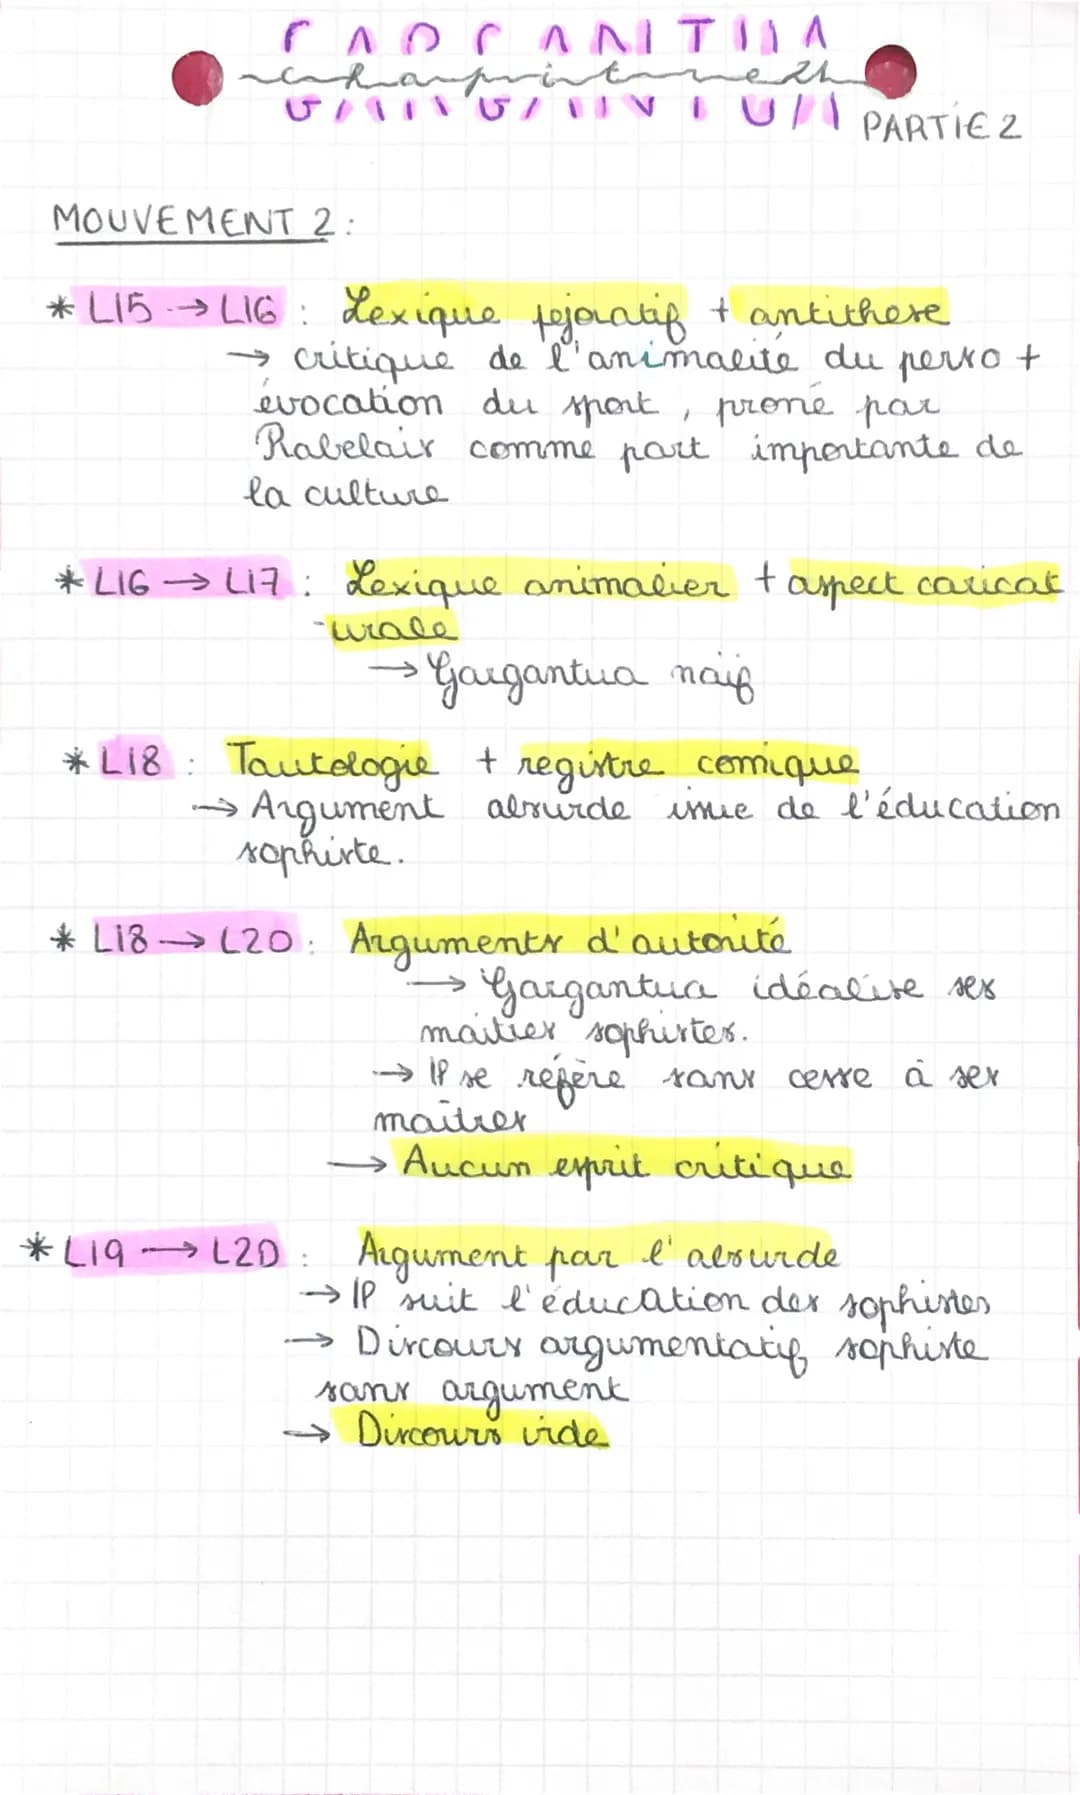 GARGANTUA
chapitre 21
PARTIE 2
MOUVEMENT 2 :
* L15 → L16 : Lexique péjoratif + antithèse
→ critique de l'animalité du perso +
évocation du sport, prôné par
Rabelais comme part importante de
la culture
* L16 → L17 : Lexique animalier + aspect caricat
-urale
→ Gargantua naïf
* L18 : Tautologie + registre comique
→ Argument absurde issue de l'éducation
sophiste.
* L18 → L20 : Arguments d'autorité
→ Gargantua idéalise ses
maîtres sophistes.
→ IP se réfère sans cesse à ses
maîtres
→ Aucun esprit critique
* L19 → L20 : Argument par l'absurde
→ IP suit l'éducation des sophistes
→ Discours argumentatif sophiste
sans argument
→ Discours vide